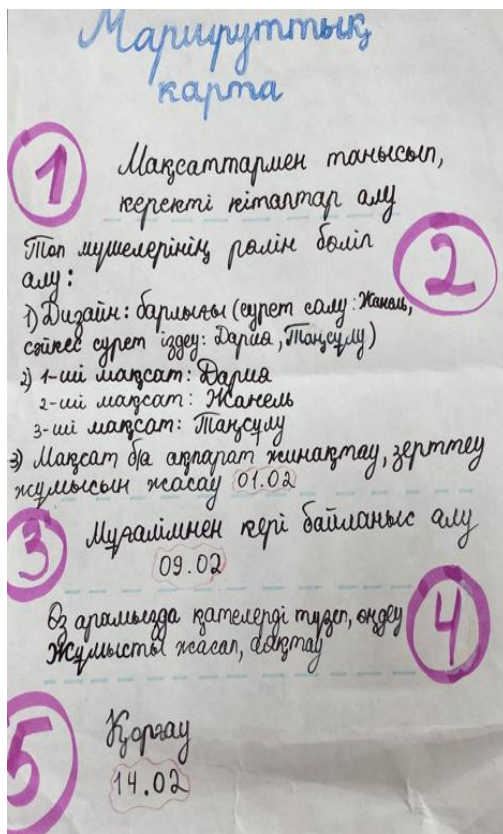 Маршруттық
карта
1
Мақсаттармен танысып,
керекті кітаптар алу
2
Топ мүшелерінің рөлін бөліп
алу:
1) Дизайн: барлығы (сурет салу: Жанель,
сәйкес сурет іздеу: Дария, Таңсұлу)
2) 1-ші мақсат: Дария
2-ші мақсат: Жанель
3-ші мақсат: Таңсұлу
3) Мақсат б/а ақпарат жинақтау, зерттеу
жұмысын жасау 01.02
3
Мұғалімнен кері байланыс алу
09.02
4
Өз арамызда қателерді түзеп, өңдеу
Жұмысты жасап, аяқтау
5
Қорғау
14.02